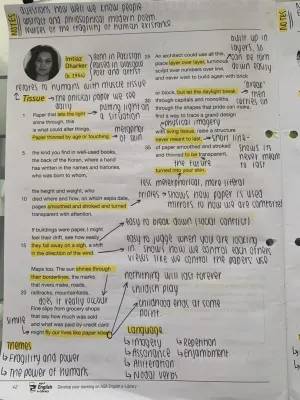 NOTES
questions how well we know people
abstract and philosophical modern poem
themes of the fragility of human existence
NOTES
Imtiaz
Dharker
(b. 1954)
born in Pakistan
raised in Glasgow
poet and artist
refers to humans with muscle tissue
Tissue
the physical paper we see
daily
putting light on
a situation
Paper that lets the light
shine through, this
is what could alter things.
Paper thinned by age or touching,
5 the kind you find in well-used books,
the back of the Koran, where a hand
has written in the names and histories,
who was born to whom,
the height and weight, who
10 died where and how, on which sepia date,
pages smoothed and stroked and turned
transparent with attention.
If buildings were paper, I might
feel their drift, see how easily
15 they fall away on a sigh, a shift
in the direction of the wind.
Maps too. The sun shines through
their borderlines, the marks
that rivers make, roads,
20 railtracks, mountainfolds,
does it really occur
Fine slips from grocery shops
that say how much was sold
and what was paid by credit card
might fly our lives like paper kites.
simile
built up in
layers, so
can be torn
down easily
An architect could use all this,
place layer over layer, luminous
script over numbers over line,
and never wish to build again with brick
or block, but let the daylight break
30 through capitals and monoliths,
through the shapes that pride can make,
find a way to trace a grand design
"break"
then
carries on
physical imagery
with living tissue, raise a structure
never meant to last,
35 of paper smoothed and stroked
and thinned to be transparent,
short line
shows its
never meant
to last
the future
turned into your skin.
less metaphorical, more literal
triples → shows how paper is used
mirrors to how we are controlled
easy to break down (social control)
easy to judge when you are looking
in. shows how we control each others
views like we control the papers use
nothing will last forever
childish play
childhood ends at some
point.
Language
↳ Imagery
↳ Assonance
↳ Alliteration
↳ Modal verbs
↳ Repetition
↳ Enjambment
Themes
↳ Fragility and power
↳ The power of humans
42
English